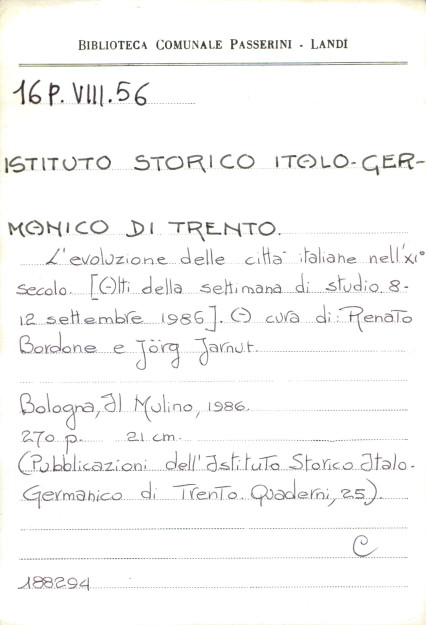 BIBLIOTECA COMUNALE PASSERINI - LANDI
16 P. VIII. 56
ISTITUTO STORICO ITALO-GER-
MANICO DI TRENTO.
L'evoluzione delle città italiane nell'XI°
secolo. [Atti della settimana di studio. 8-
12 settembre 1986]. A cura di: Renato
Bordone e Jörg Jarnut.
Bologna, Il Mulino, 1986.
270 p. 21 cm.
(Pubblicazioni dell'Istituto Storico Italo-
Germanico di Trento. Quaderni, 25).
C
188294